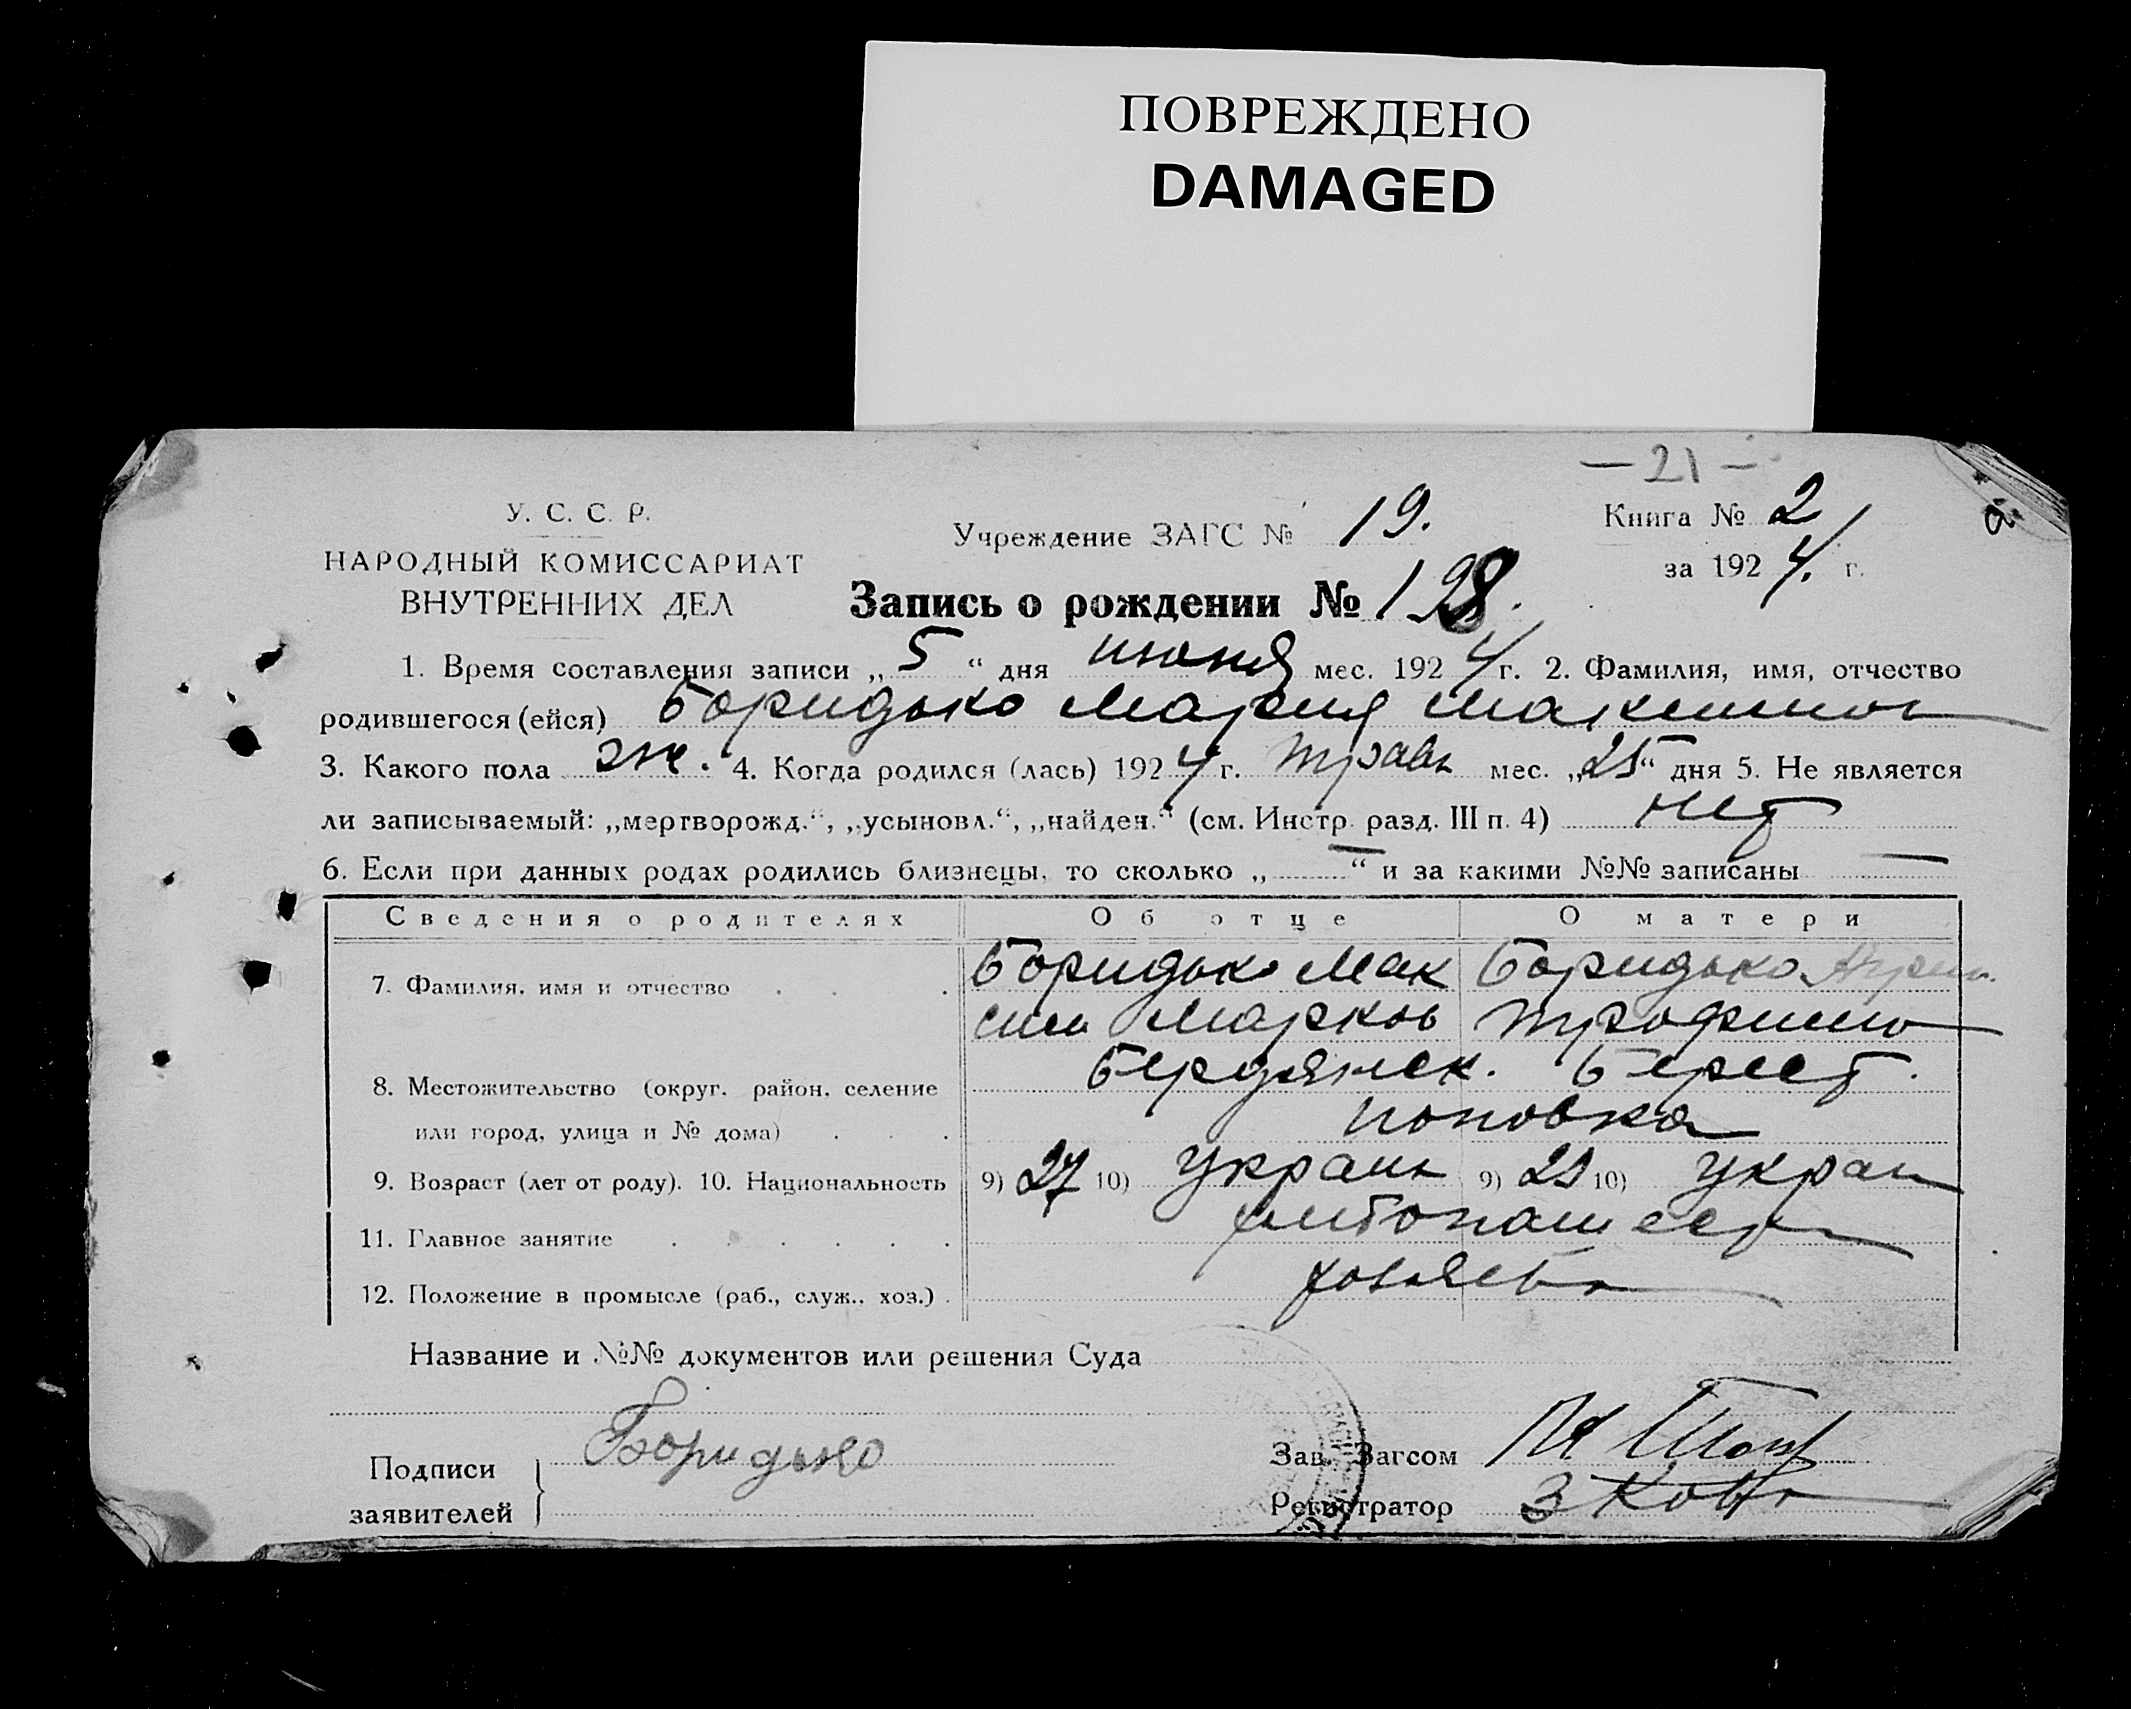 ПОВРЕЖДЕНО
DAMAGED
— 21 —
У. С. С. Р.
НАРОДНЫЙ КОМИССАРИАТ
ВНУТРЕННИХ ДЕЛ
Учреждение ЗАГС № 19.
Книга № 2
за 1924 г.
Запись о рождении № 198.
1. Время составления записи „5“ дня июня мес. 1924 г. 2. Фамилия, имя, отчество
родившегося (ейся) Боридько Мария Максимов
3. Какого пола ж. 4. Когда родился (лась) 1924 г. травь мес. „25“ дня 5. Не является
ли записываемый: „мертворожд.“, „усыновл.“, „найден.“ (см. Инстр. разд. III п. 4) нет
6. Если при данных родах родились близнецы, то сколько „—“ и за какими №№ записаны —
Сведения о родителях Об отце О матери
7. Фамилия, имя и отчество Боридько Мак Боридько
сим Марков Трофимо
8. Местожительство (округ, район, селение Бердянск. Берест.
или город, улица и № дома) Поповка
9. Возраст (лет от роду). 10. Национальность 9) 27 10) Украин 9) 25 10) Украин
11. Главное занятие хлебопашест
12. Положение в промысле (раб., служ., хоз.) хозяева
Название и №№ документов или решения Суда
Подписи
заявителей
Боридько
Зав. Загсом
Регистратор